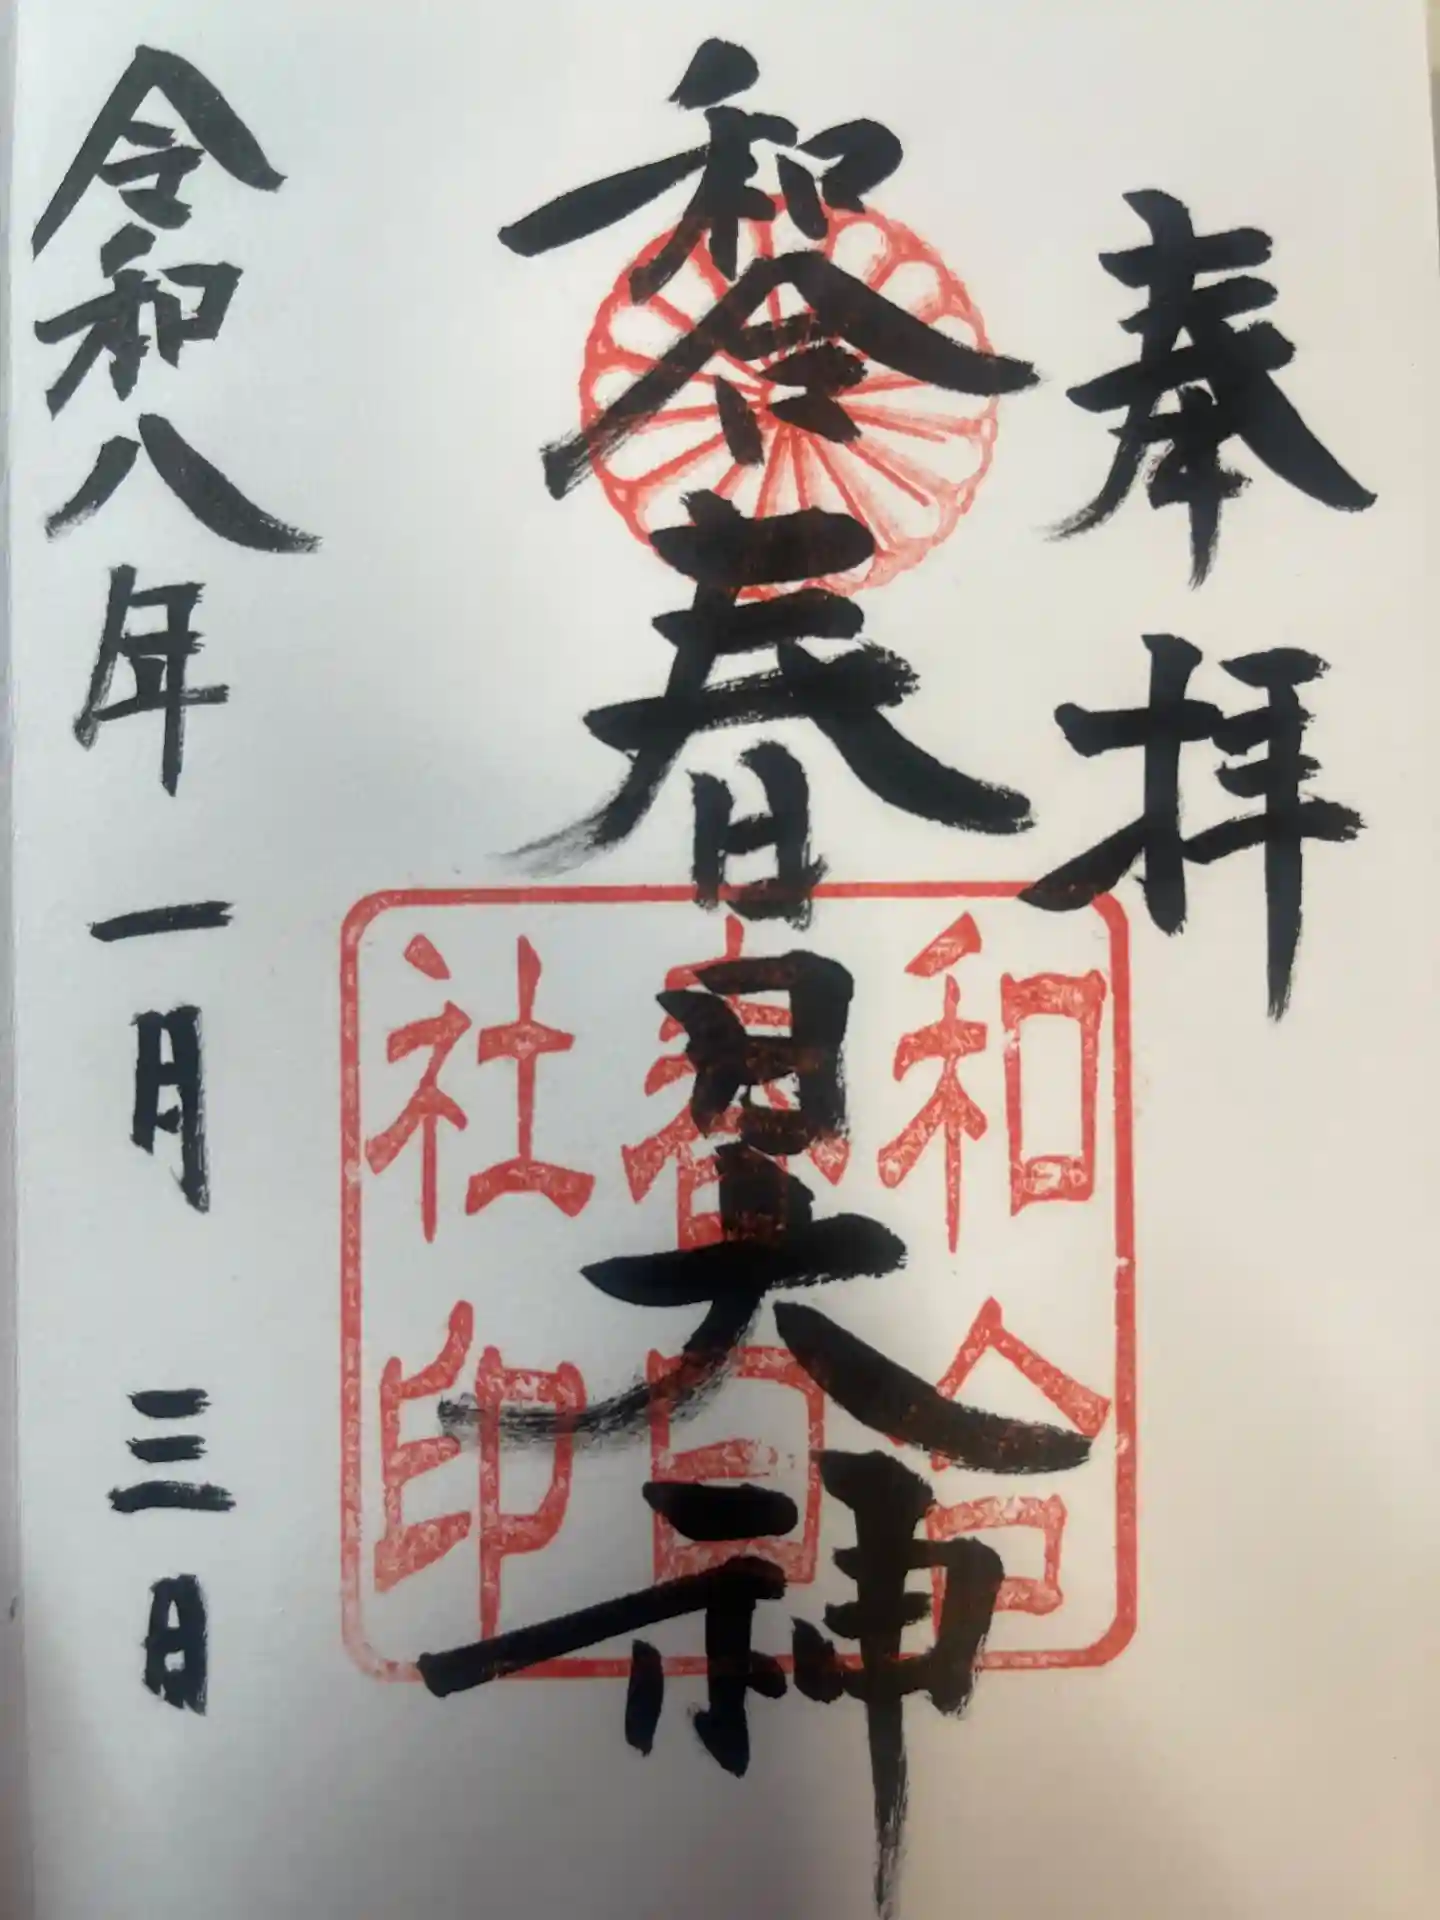 奉拝
和合春日大神
令和八年一月三日
和合
春日
社印